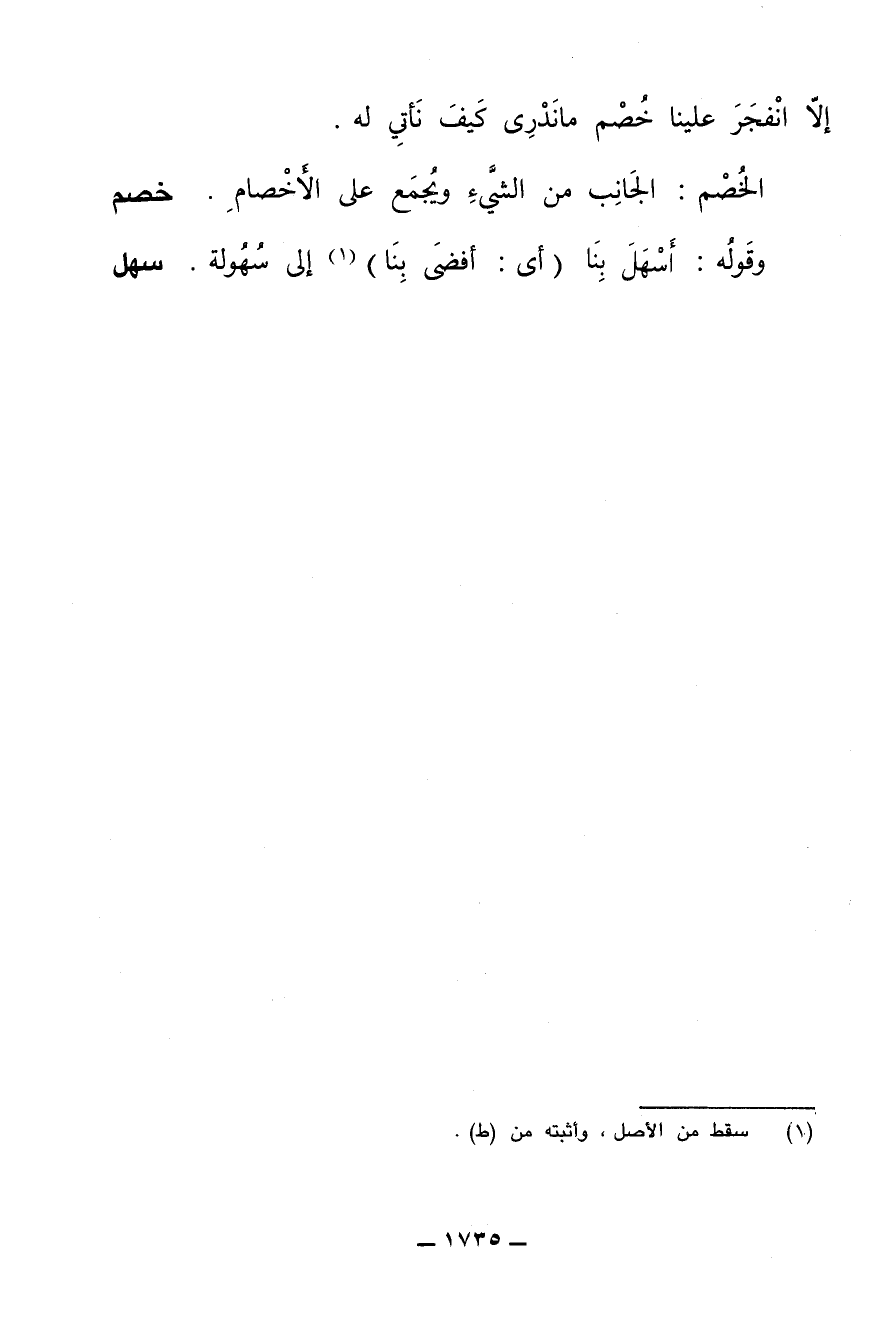 إلاّ انْفجَرَ علينا خُصْم مانَدْرِى كَيفَ نَأتِي له .
الخُصْم : الجَانِب من الشَّيءِ ويُجمَع على الأَخْصامِ . خصم
وقَولُه : أَسْهَلَ بِنَا ( أى : أفضَى بِنَا ) (١) إلى سُهُولة . سهل
(١) سقط من الأصل ، وأثبته من (ط) .
ــ ١٧٣٥ ــ